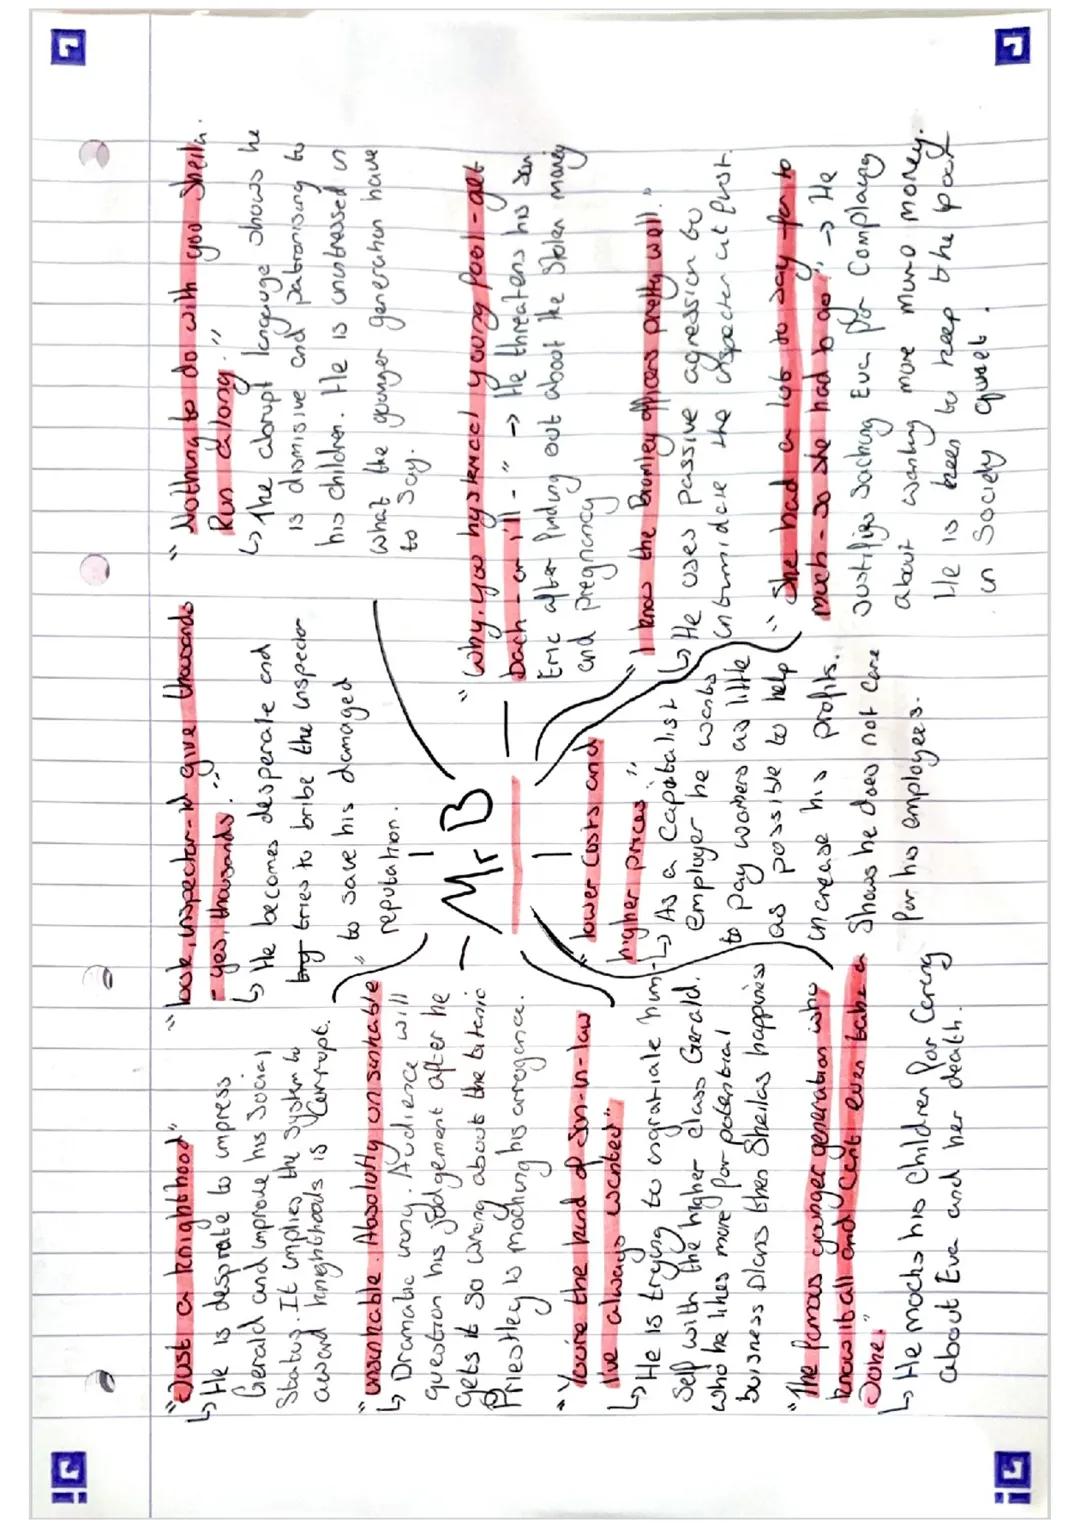 "Just a knighthood"
↳ He is desprate to impress
Gerald and improve his social
Status. It implies the system to
award knighthoods is Corrupt.
"unsinkable. Absolutly unsinkable"
↳ Dramatic irony. Audience will
question his judgement after he
gets it so wrong about the titanic
Priestley is mocking his arrogance.
"You're the kind of Son-in-law
I've always wanted"
↳ He is trying to ingratiate him-
Self with the higher class Gerald.
who he likes more for potential
business plans then Sheilas happiness
"The famous younger generation who
know it all and cant even take a
Joke."
↳ He mocks his children for Caring
about Eva and her death.
"look, inspector-id give thousands
- yes, thousands."
↳ He becomes desperate and
tries to bribe the inspector
to save his damaged
reputation.
Mr B
"lower costs and
higher prices"
↳ As a capitalist
employer he wants
to pay workers as little
as possible to help
increase his profits.
Shows he does not care
for his employees.
"Nothing to do with you Sheila.
Run along."
↳ The abrupt language shows he
is dismisive and patronising to
his children. He is unintressed in
what the younger generation have
to say.
"Why, you hysterical young fool - get
back - or i'll - " → He threatens his son
Eric after finding out about the Stolen money
and pregnancy
"I know the Brumley officers pretty well."
↳ He uses passive agression to
intimidate the inspecter at first.
"She had a lot to say far to
much - so she had to go" → He
Justifies Sacking Eva for Complaing
about wanting more more money.
He is keen to keep the poor
in Society quiet.